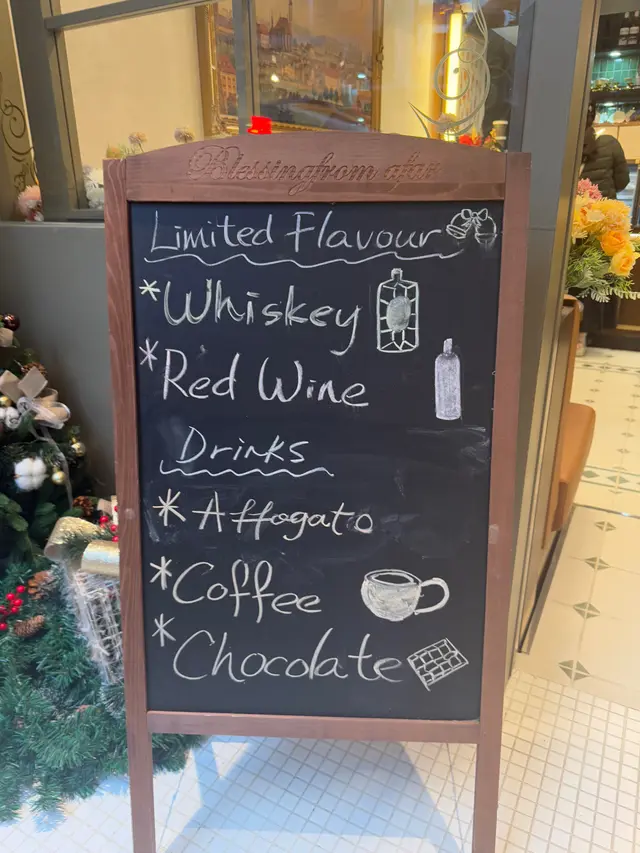 Blessingfrom afar
Limited Flavour
*Whiskey
*Red Wine
Drinks
*Affogato
*Coffee
*Chocolate